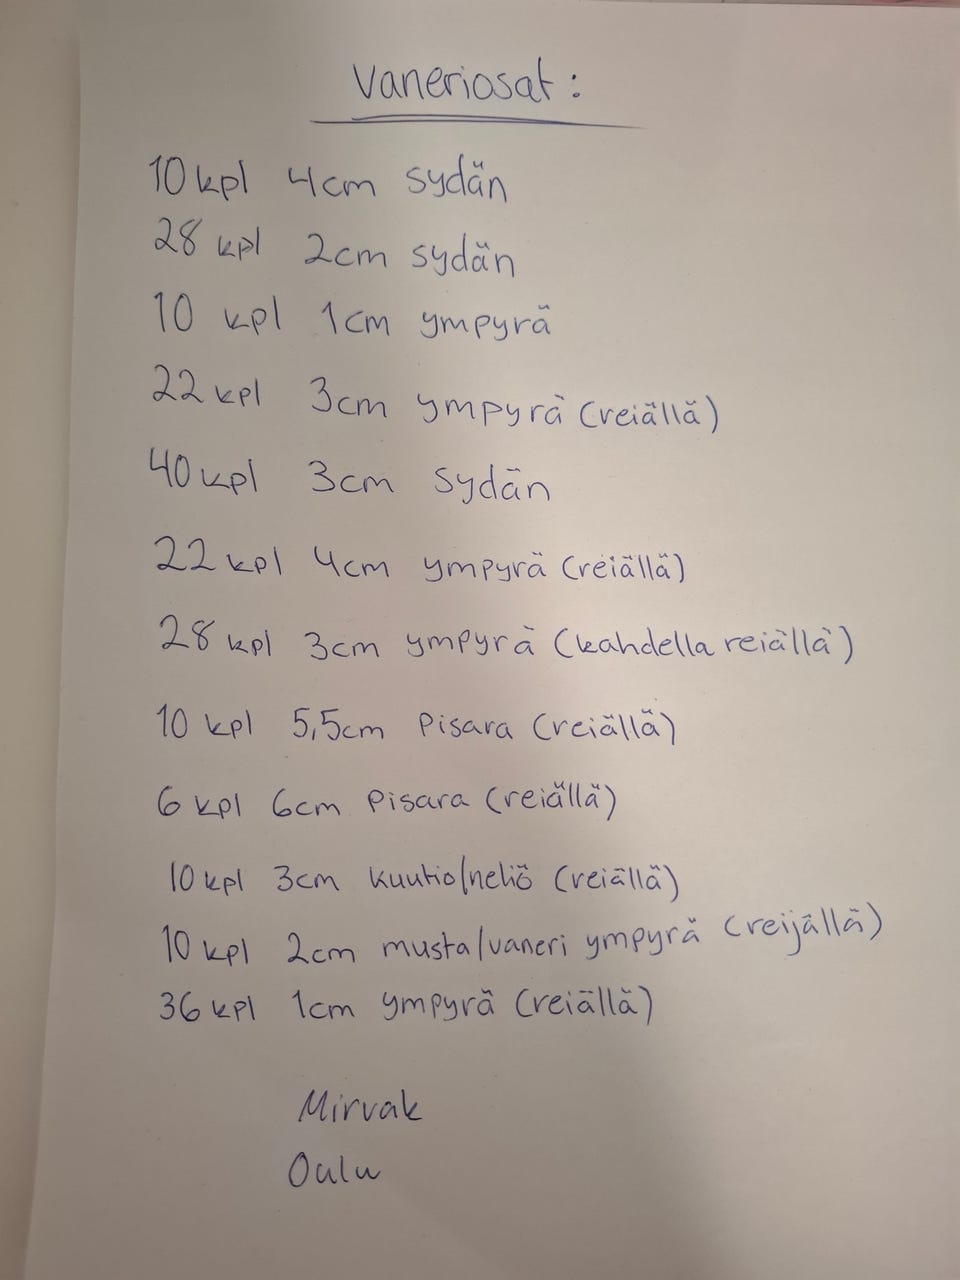 Vaneriosat:
10 kpl 4cm sydän
28 kpl 2cm sydän
10 kpl 1cm ympyrä
22 kpl 3cm ympyrä (reiällä)
40 kpl 3cm sydän
22 kpl 4cm ympyrä (reiällä)
28 kpl 3cm ympyrä (kahdella reiällä)
10 kpl 5,5cm Pisara (reiällä)
6 kpl 6cm Pisara (reiällä)
10 kpl 3cm kuutio/neliö (reiällä)
10 kpl 2cm musta/vaneri ympyrä (reijällä)
36 kpl 1cm ympyrä (reiällä)
Mirvak
Oulu